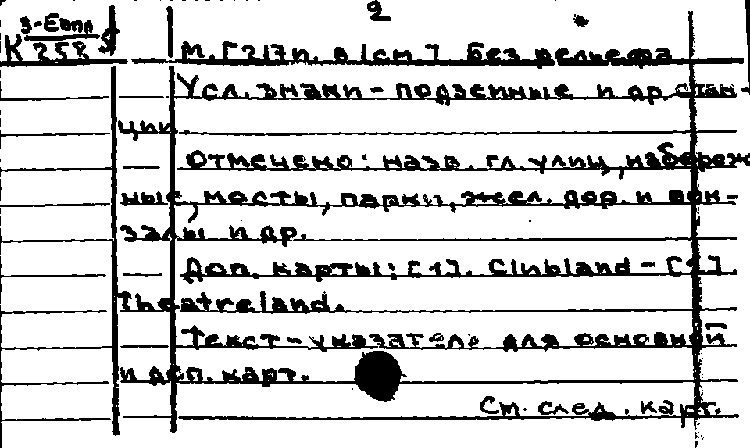 2
3-Европ
К 258
М. [217п. в 1см.] без рельефа
Усл. знаки - подземные и др. стан-
ции.
— Отмечено: назв. гл. улиц, набереж
ные, мосты, парки, жел. дор. и вок-
залы и др.
— Доп. карты: [1]. Clubland - [2].
Theatreland.
Текст-указатель для основной
и доп. карт.
См. след. карт.